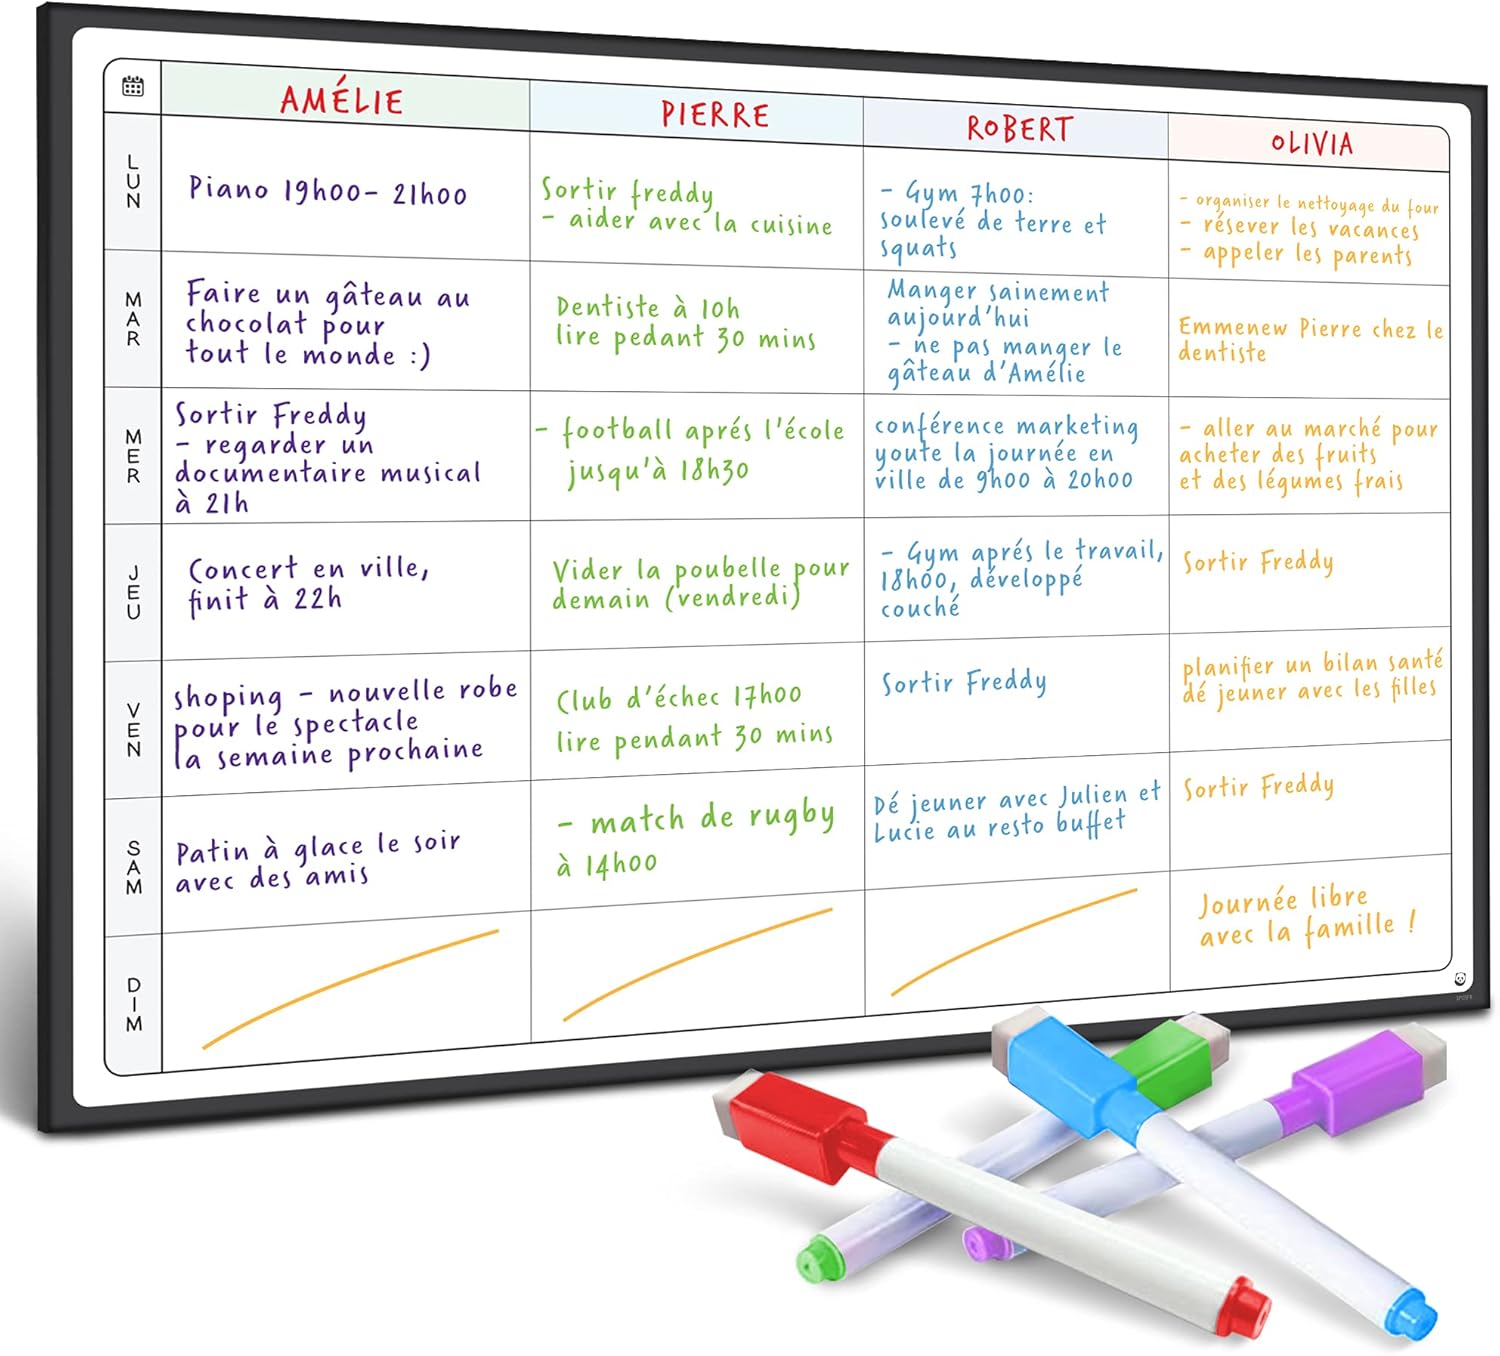 AMÉLIE
PIERRE
ROBERT
OLIVIA
LUN
Piano 19h00- 21h00
Sortir freddy
- aider avec la cuisine
- Gym 7h00:
soulevé de terre et
squats
- organiser le nettoyage du four
- résever les vacances
- appeler les parents
MAR
Faire un gâteau au
chocolat pour
tout le monde :)
Dentiste à 10h
lire pedant 30 mins
Manger sainement
aujourd'hui
- ne pas manger le
gâteau d'Amélie
Emmenew Pierre chez le
dentiste
MER
Sortir Freddy
- regarder un
documentaire musical
à 21h
- football aprés l'école
jusqu'à 18h30
conférence marketing
youte la journée en
ville de 9h00 à 20h00
- aller au marché pour
acheter des fruits
et des légumes frais
JEU
Concert en ville,
finit à 22h
Vider la poubelle pour
demain (vendredi)
- Gym aprés le travail,
18h00, développé
couché
Sortir Freddy
VEN
shoping - nouvelle robe
pour le spectacle
la semaine prochaine
Club d'échec 17h00
lire pendant 30 mins
Sortir Freddy
planifier un bilan santé
dé jeuner avec les filles
SAM
Patin à glace le soir
avec des amis
- match de rugby
à 14h00
Dé jeuner avec Julien et
Lucie au resto buffet
Sortir Freddy
DIM
Journée libre
avec la famille !